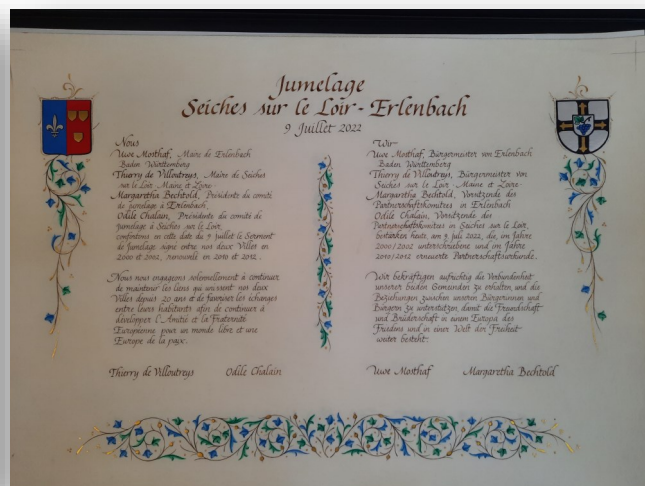 Jumelage
Seiches sur le Loir - Erlenbach
9 Juillet 2022
Nous
Uwe Mosthaf, Maire de Erlenbach
Baden Württemberg
Thierry de Villoutreys, Maire de Seiches
sur le Loir - Maine et Loire -
Margaretha Bechtold, Présidente du comité
de jumelage d'Erlenbach,
Odile Chalain, Présidente du comité de
jumelage à Seiches sur le Loir,
confirmons en cette date du 9 juillet le Serment
de Jumelage signé entre nos deux Villes en
2000 et 2002, renouvelé en 2010 et 2012.
Nous nous engageons solennellement à continuer
de maintenir les liens qui unissent nos deux
Villes depuis 20 ans et de favoriser les échanges
entre leurs habitants afin de continuer à
développer l'Amitié et la Fraternité
Européenne pour un monde libre et une
Europe de la paix.
Thierry de Villoutreys Odile Chalain
Wir
Uwe Mosthaf, Bürgermeister von Erlenbach
Baden Württemberg
Thierry de Villoutreys, Bürgermeister von
Seiches sur le Loir - Maine et Loire -
Margaretha Bechtold, Vorsitzende des
Partnerschaftskomitees in Erlenbach
Odile Chalain, Vorsitzende des
Partnerschaftskomitees in Seiches sur le Loir,
bestärken heute, am 9 juli 2022, die, im Jahre
2000/2002 unterschriebene und im Jahre
2010/2012 erneuerte Partnerschaftsurkunde.
Wir bekräftigen aufrichtig die Verbundenheit
unserer beiden Gemeinden zu erhalten, und die
Beziehungen zwischen unseren Bürgerinnen und
Bürgern zu unterstützen, damit die Freundschaft
und Brüderschaft in einem Europa des
Friedens und in einer Welt der Freiheit
weiter besteht.
Uwe Mosthaf Margaretha Bechtold